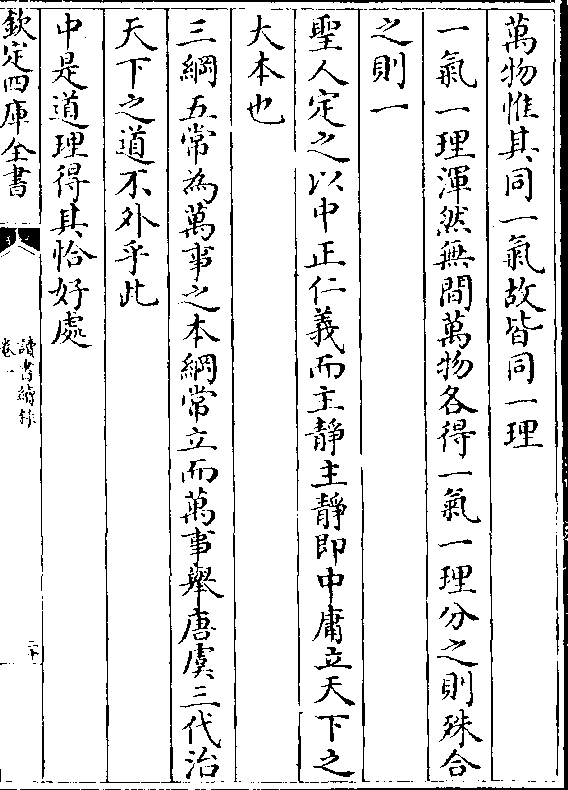 萬物惟其同一氣故皆同一理
一氣一理渾然無間萬物各得一氣一理分之則殊合
之則一
聖人定之以中正仁義而主靜主靜即中庸立天下之
大本也
三綱五常為萬事之本綱常立而萬事舉唐虞三代治
天下之道不外乎此
中是道理得其恰好處
欽定四庫全書
讀書續録
卷一